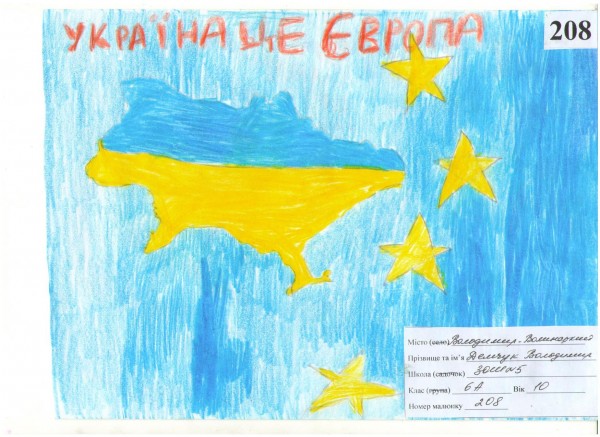 УКРАЇНА ЦЕ ЄВРОПА
208
Місто (село) Володимир-Волинський
Прізвище та ім'я Демчук Володимир
Школа (садочок) ЗОШ №5
Клас (група) 6А Вік 10
Номер малюнку 208